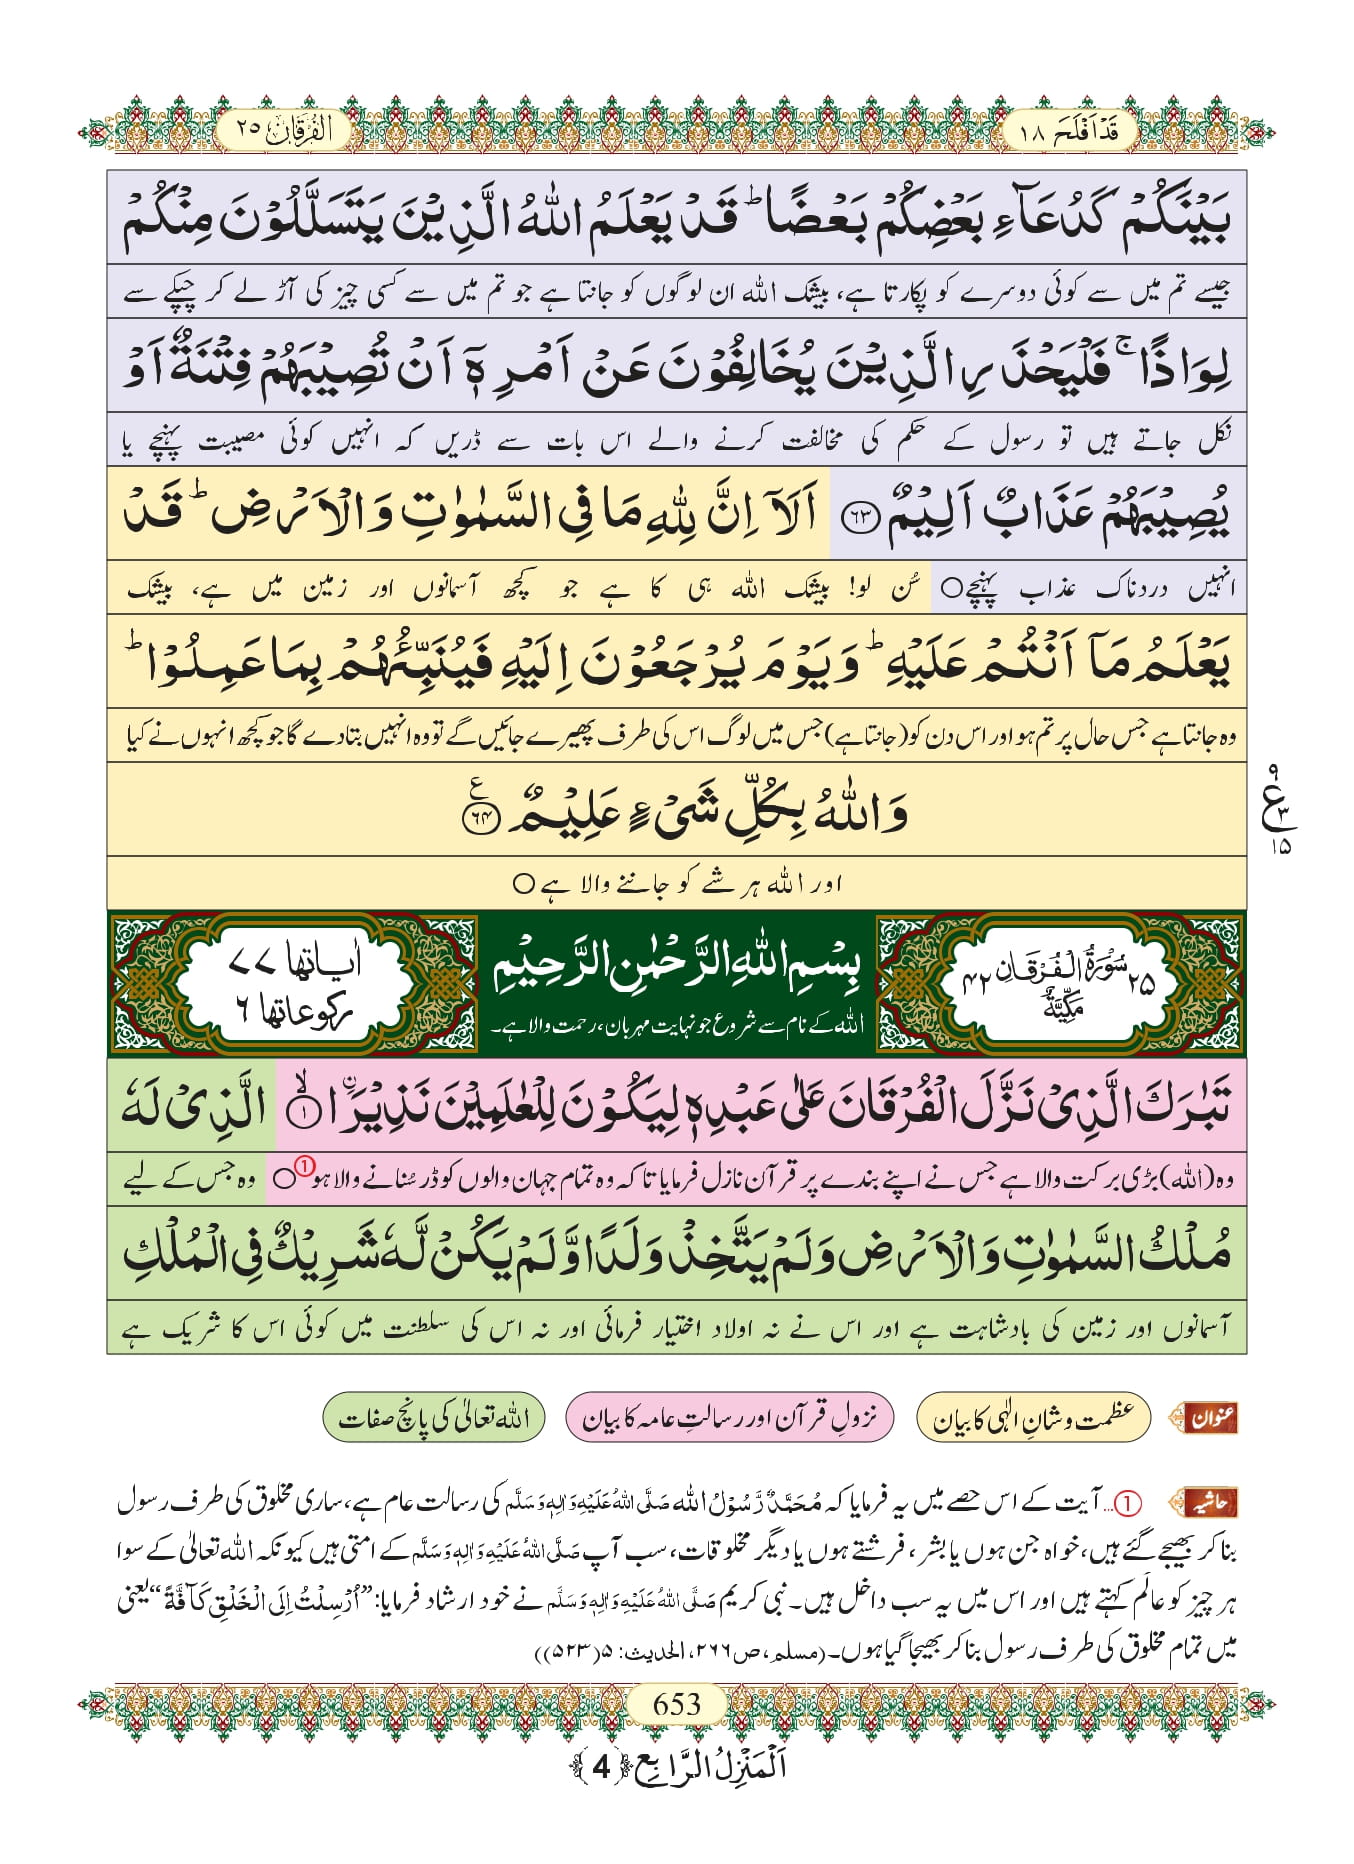 قَدْ اَفْلَحَ ١٨
الْفُرْقَان ٢٥
بَيْنَكُمْ كَدُعَآءِ بَعْضِكُمْ بَعْضًا ؕ قَدْ يَعْلَمُ اللّٰهُ الَّذِيْنَ يَتَسَلَّلُوْنَ مِنْكُمْ
جیسے تم میں سے کوئی دوسرے کو پکارتا ہے، بیشک اللہ ان لوگوں کو جانتا ہے جو تم میں سے کسی چیز کی آڑ لے کر چپکے سے
لِوَاذًا ۚ فَلْيَحْذَرِ الَّذِيْنَ يُخَالِفُوْنَ عَنْ اَمْرِهٖۤ اَنْ تُصِيْبَهُمْ فِتْنَةٌ اَوْ
نکل جاتے ہیں تو رسول کے حکم کی مخالفت کرنے والے اس بات سے ڈریں کہ انہیں کوئی مصیبت پہنچے یا
يُصِيْبَهُمْ عَذَابٌ اَلِيْمٌ ﴿۶۳﴾ اَلَاۤ اِنَّ لِلّٰهِ مَا فِي السَّمٰوٰتِ وَالْاَرْضِ ؕ قَدْ
انہیں دردناک عذاب پہنچے○ سُن لو! بیشک اللہ ہی کا ہے جو کچھ آسمانوں اور زمین میں ہے، بیشک
يَعْلَمُ مَاۤ اَنْتُمْ عَلَيْهِ ؕ وَيَوْمَ يُرْجَعُوْنَ اِلَيْهِ فَيُنَبِّئُهُمْ بِمَا عَمِلُوْا ؕ
وہ جانتا ہے جس حال پر تم ہو اور اس دن کو (جانتا ہے) جس میں لوگ اس کی طرف پھیرے جائیں گے تو وہ انہیں بتادے گا جو کچھ انہوں نے کیا
وَاللّٰهُ بِكُلِّ شَيْءٍ عَلِيْمٌ ﴿۶۴﴾ ع
۹
ع ۳
۱۵
اور اللہ ہر شے کو جاننے والا ہے○
٢٥ سُوْرَةُ الْفُرْقَانِ ٤٢
مَكِّيَّةٌ
بِسْمِ اللّٰهِ الرَّحْمٰنِ الرَّحِيْمِ
اللہ کے نام سے شروع جو نہایت مہربان، رحمت والا ہے۔
اٰیاتها ۷۷
رکوعاتها ۶
تَبٰرَكَ الَّذِيْ نَزَّلَ الْفُرْقَانَ عَلٰى عَبْدِهٖ لِيَكُوْنَ لِلْعٰلَمِيْنَ نَذِيْرَا ۙ﴿۱﴾ الَّذِيْ لَهٗ
وہ (اللہ) بڑی برکت والا ہے جس نے اپنے بندے پر قرآن نازل فرمایا تاکہ وہ تمام جہان والوں کو ڈر سُنانے والا ہو①○ وہ جس کے لیے
مُلْكُ السَّمٰوٰتِ وَالْاَرْضِ وَلَمْ يَتَّخِذْ وَلَدًا وَّلَمْ يَكُنْ لَّهٗ شَرِيْكٌ فِي الْمُلْكِ
آسمانوں اور زمین کی بادشاہت ہے اور اس نے نہ اولاد اختیار فرمائی اور نہ اس کی سلطنت میں کوئی اس کا شریک ہے
عنوان عظمت وشانِ الٰہی کا بیان نزولِ قرآن اور رسالتِ عامہ کا بیان اللہ تعالیٰ کی پانچ صفات
حاشیہ ①... آیت کے اس حصے میں یہ فرمایا کہ مُحَمَّدٌ رَّسُوْلُ اللہ صَلَّی اللہُ عَلَیْہِ وَاٰلِہٖ وَسَلَّم کی رسالت عام ہے، ساری مخلوق کی طرف رسول
بنا کر بھیجے گئے ہیں، خواہ جن ہوں یا بشر، فرشتے ہوں یا دیگر مخلوقات، سب آپ صَلَّی اللہُ عَلَیْہِ وَاٰلِہٖ وَسَلَّم کے امتی ہیں کیونکہ اللہ تعالیٰ کے سوا
ہر چیز کو عالَم کہتے ہیں اور اس میں یہ سب داخل ہیں۔ نبی کریم صَلَّی اللہُ عَلَیْہِ وَاٰلِہٖ وَسَلَّم نے خود ارشاد فرمایا: ”اُرْسِلْتُ اِلَى الْخَلْقِ كَآفَّةً“ یعنی
میں تمام مخلوق کی طرف رسول بنا کر بھیجا گیا ہوں۔ (مسلم، ص۲۶۶، الحدیث: ۵(۵۲۳))
653
اَلْمَنْزِلُ الرَّابِع ﴿4﴾